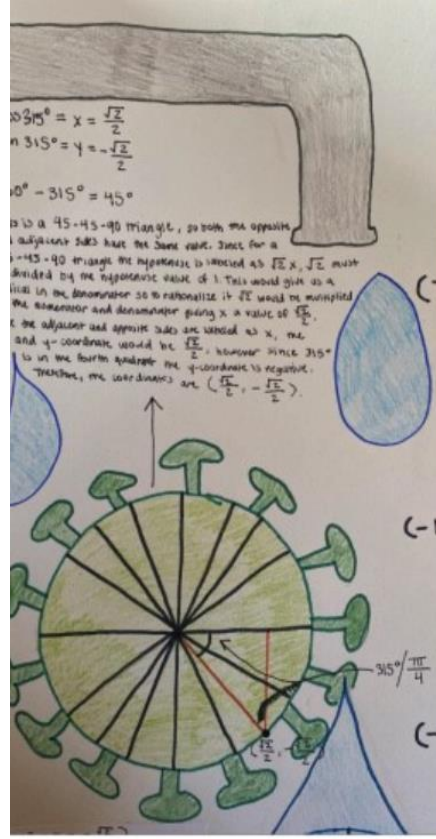 os 315° = x = √2/2
n 315° = y = -√2/2
0° - 315° = 45°
s is a 45-45-90 triangle, so both the opposite
adjacent sides have the same value. Since for a
-45-90 triangle the hypotenuse is labeled as √2 x, √2 must
divided by the hypotenuse value of 1. This would give us a
ical in the denominator so to rationalize it √2 would be multiplied
the numerator and denominator giving x a value of √2/2.
the adjacent and opposite sides are labeled as x, the
and y-coordinate would be √2/2, however since 315°
is in the fourth quadrant the y-coordinate is negative.
Therefore, the coordinates are (√2/2, -√2/2).
(-
(-
315°/π/4
(-
(√2/2, -√2/2)